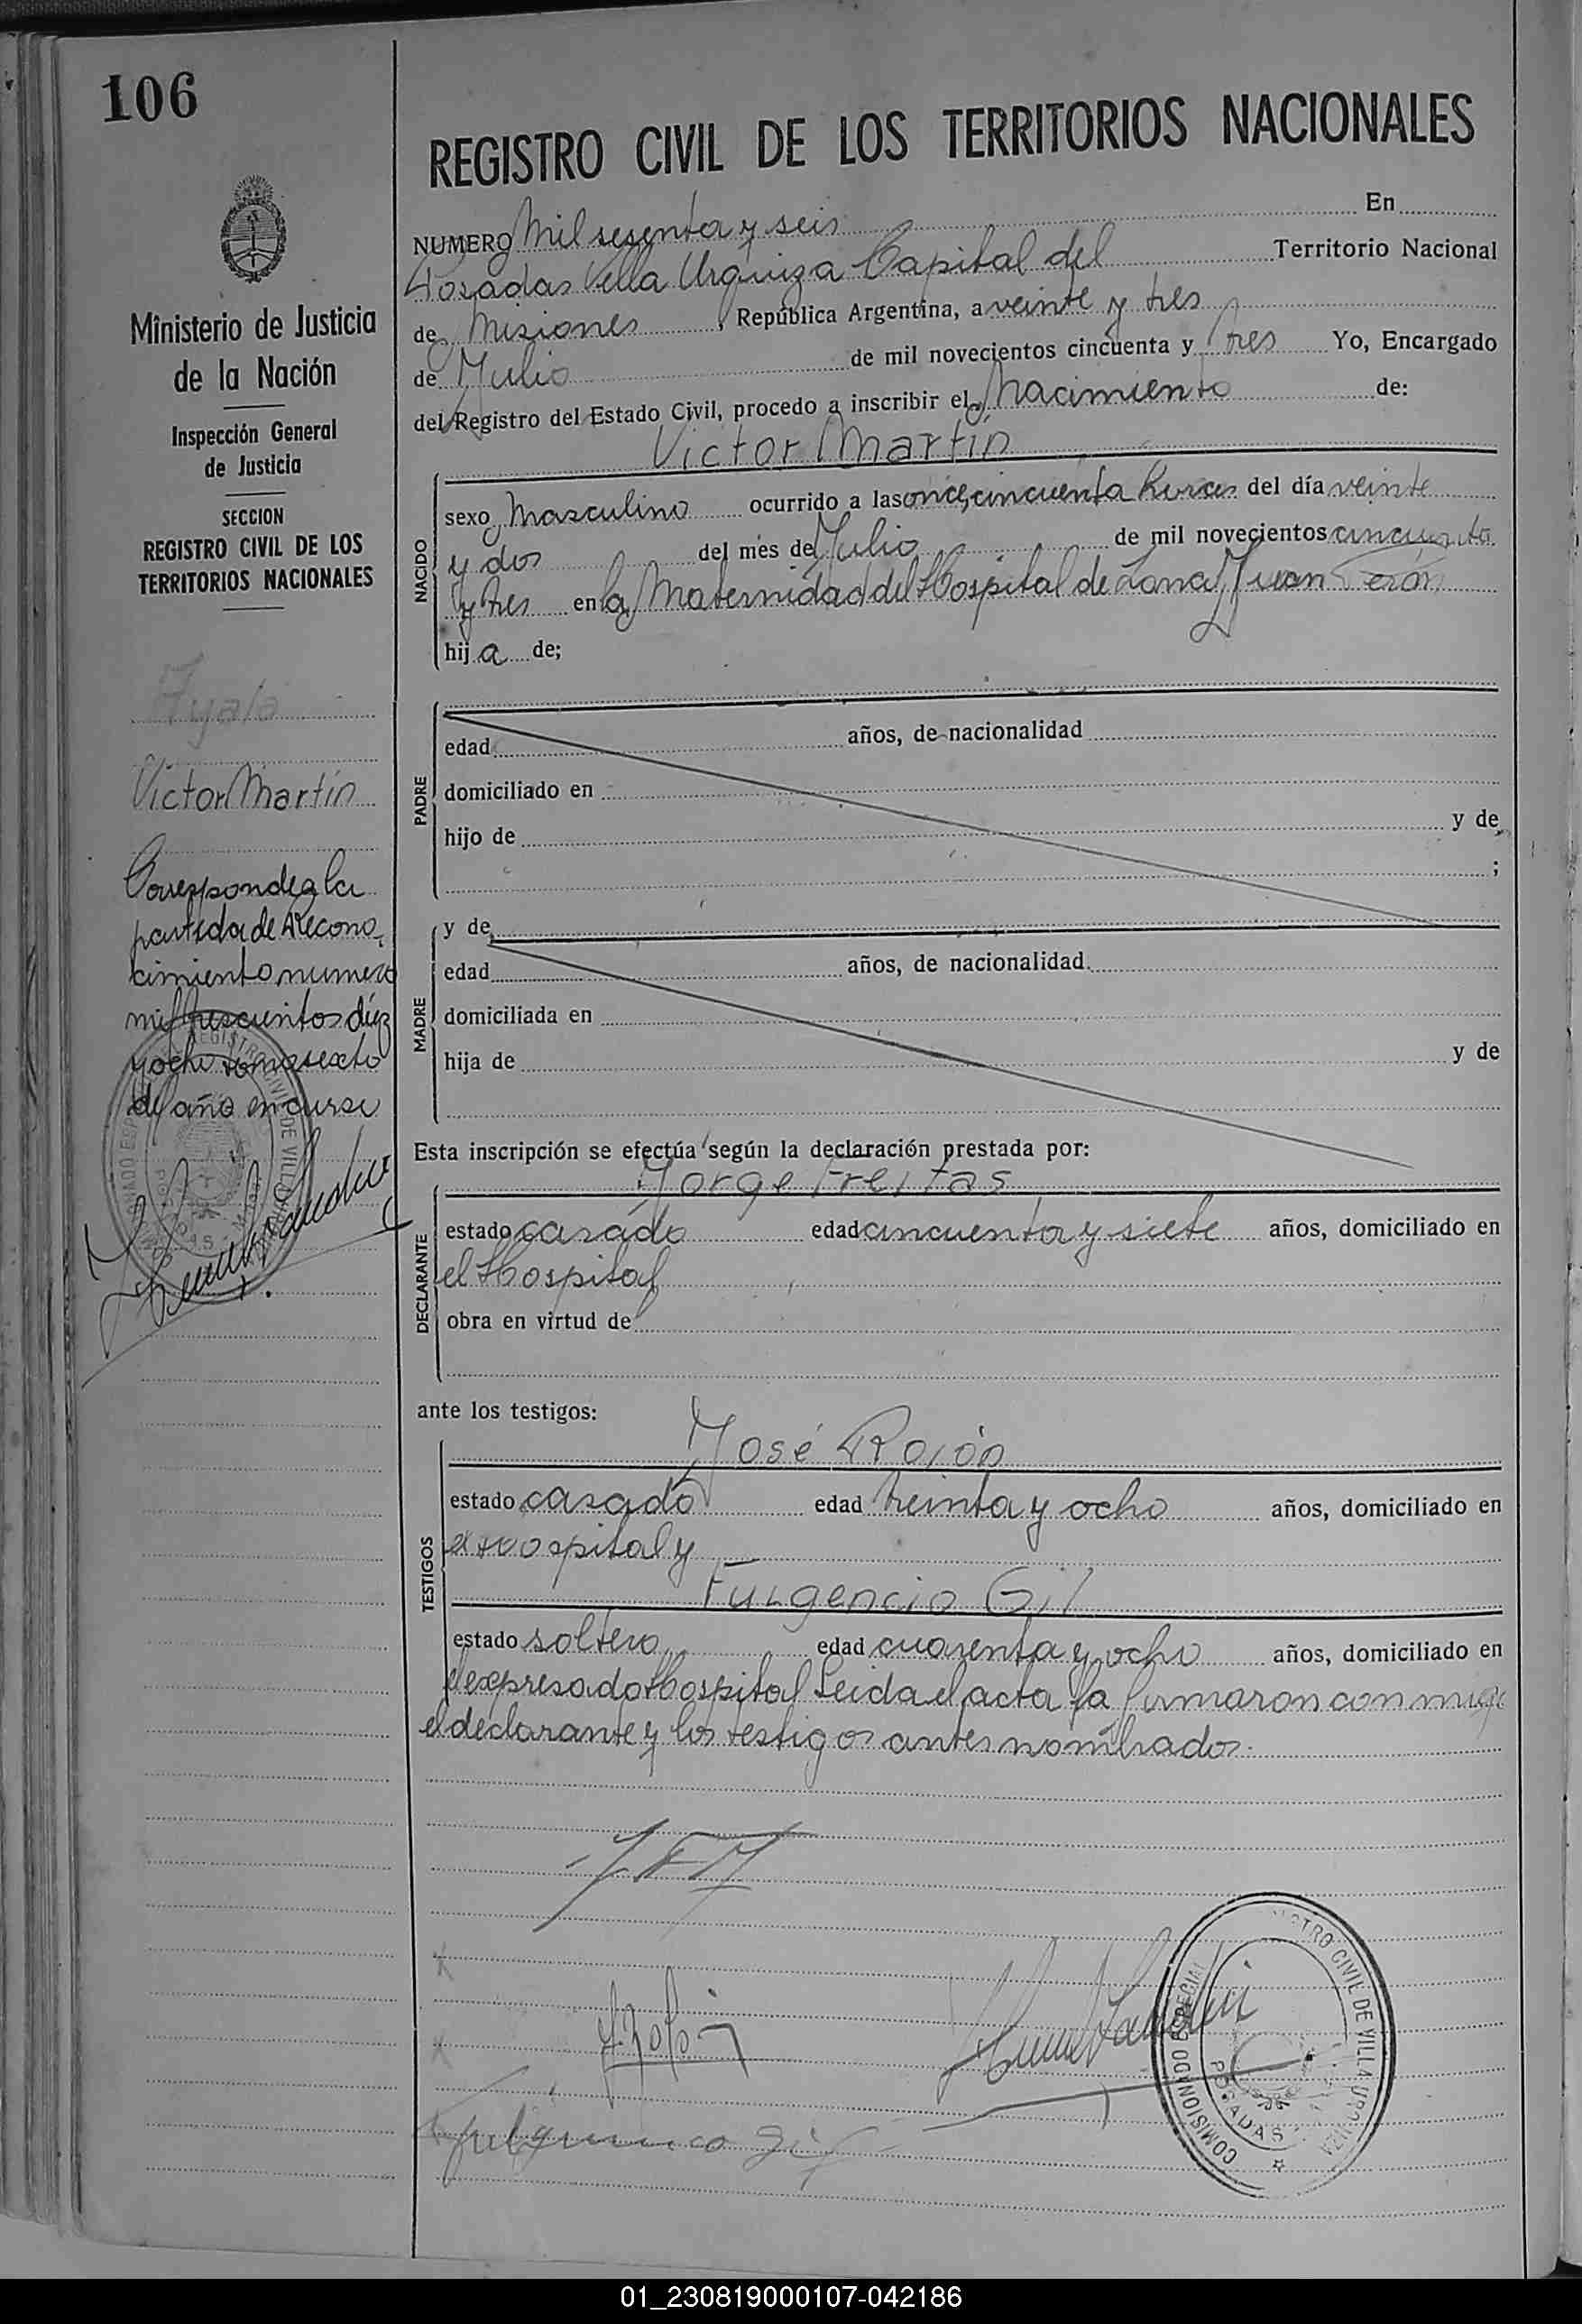 106
REGISTRO CIVIL DE LOS TERRITORIOS NACIONALES
NUMERO Mil sesenta y seis En
Posadas Villa Urquiza Capital del Territorio Nacional
de Misiones, República Argentina, a veinte y tres
de Julio de mil novecientos cincuenta y tres Yo, Encargado
del Registro del Estado Civil, procedo a inscribir el Nacimiento de:
Victor Martín
Ministerio de Justicia
de la Nación
Inspección General
de Justicia
SECCION
REGISTRO CIVIL DE LOS
TERRITORIOS NACIONALES
Ayala
Victor Martín
Corresponde a la
partida de Recono-
cimiento numero
mil trescientos diez
y ocho tomo sexto
del año en curso
NACIDO
sexo Masculino ocurrido a las once, cincuenta horas del día veinte
y dos del mes de Julio de mil novecientos cincuenta
y tres en la Maternidad del Hospital de Zona Juan Perón
hij a de;
PADRE
edad años, de nacionalidad
domiciliado en
hijo de y de
;
MADRE
y de
edad años, de nacionalidad
domiciliada en
hija de y de
Esta inscripción se efectúa según la declaración prestada por:
Jorge Freitas
DECLARANTE
estado casado edad cincuenta y siete años, domiciliado en
el Hospital
obra en virtud de
ante los testigos:
José Rolón
TESTIGOS
estado casado edad treinta y ocho años, domiciliado en
el Hospital y
Fulgencio Gil
estado soltero edad cuarenta y ocho años, domiciliado en
el expresado Hospital Leida el acta la firmaron conmigo
el declarante y los testigos antes nombrados.
COMISIONADO ESPECIAL REGISTRO CIVIL DE VILLA URQUIZA
POSADAS
01_230819000107-042186